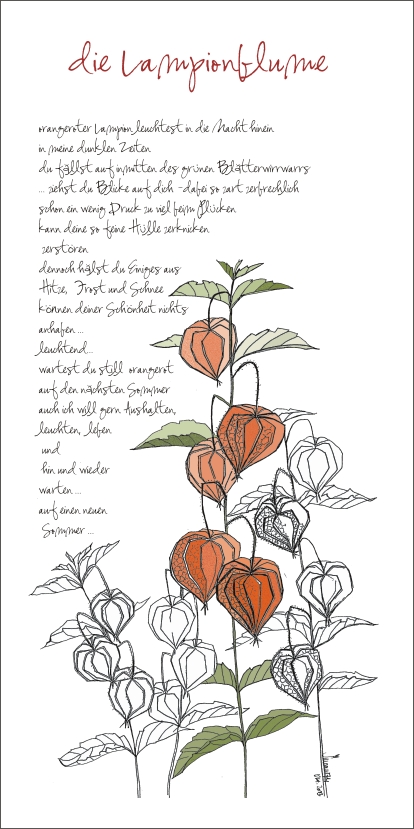 die Lampionblume
orangeroter Lampion leuchtest in die Nacht hinein
in meine dunklen Zeiten
du fällst auf inmitten des grünen Blätterwirrwarrs
... ziehst du Blicke auf dich - dabei so zart zerbrechlich
schon ein wenig Druck zu viel beim Pflücken
kann deine so feine Hülle zerknicken
zerstören
dennoch hälst du Einiges aus
Hitze, Frost und Schnee
können deiner Schönheit nichts
anhaben ...
leuchtend...
wartest du still orangerot
auf den nächsten Sommer
auch ich will gern Aushalten,
leuchten, leben
und
hin und wieder
warten ...
auf einen neuen
Sommer ...